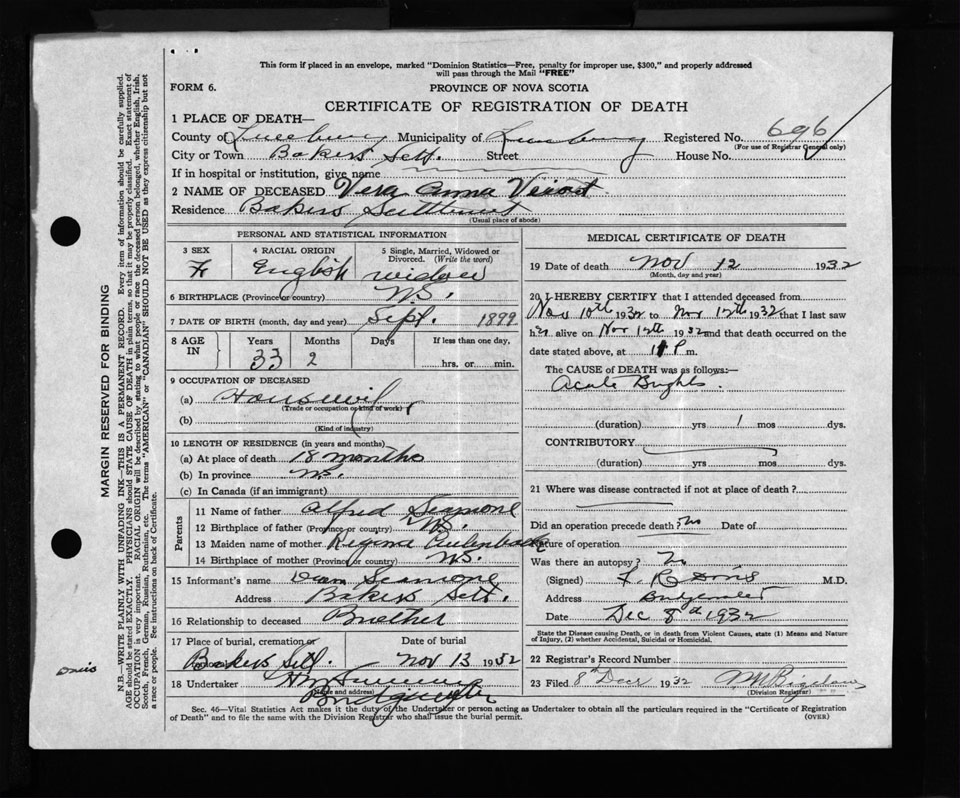 This form if placed in an envelope, marked "Dominion Statistics—Free, penalty for improper use, $300," and properly addressed
will pass through the Mail "FREE"
FORM 6.
PROVINCE OF NOVA SCOTIA
CERTIFICATE OF REGISTRATION OF DEATH
1 PLACE OF DEATH—
County of Lunenburg Municipality of Lunenburg Registered No. 696
(For use of Registrar General only)
City or Town Bakers Sett. Street House No.
If in hospital or institution, give name
2 NAME OF DECEASED Vera Anna Veinot
Residence Bakers Settlement
(Usual place of abode)
PERSONAL AND STATISTICAL INFORMATION
3 SEX 4 RACIAL ORIGIN 5 Single, Married, Widowed or Divorced. (Write the word)
F English widow
6 BIRTHPLACE (Province or country) N.S.
7 DATE OF BIRTH (month, day and year) Sept. 1899
8 AGE IN Years Months Days If less than one day,
33 2 hrs. or min.
9 OCCUPATION OF DECEASED
(a) Housewife
(Trade or occupation or kind of work)
(b)
(Kind of industry)
10 LENGTH OF RESIDENCE (in years and months)
(a) At place of death 18 months
(b) In province
(c) In Canada (if an immigrant)
Parents
11 Name of father Alfred Seamone
12 Birthplace of father (Province or country) N.S.
13 Maiden name of mother Regena
14 Birthplace of mother (Province or country) N.S.
15 Informant's name Seamone
Address Bakers Sett.
16 Relationship to deceased Brother
17 Place of burial, cremation or Date of burial
Bakers Sett. Nov 13 1932
18 Undertaker
(Name and address)
Bridgewater
MEDICAL CERTIFICATE OF DEATH
19 Date of death Nov 12 1932
(Month, day and year)
20 I HEREBY CERTIFY that I attended deceased from
Nov 10th 1932 to Nov 12th 1932 that I last saw
her alive on Nov 12th 1932 and that death occurred on
date stated above, at 11 P m.
The CAUSE OF DEATH was as follows:—
Acute Brights
(duration) yrs 1 mos dys.
CONTRIBUTORY
(duration) yrs mos dys.
21 Where was disease contracted if not at place of death?
Did an operation precede death? No Date of
Nature of operation
Was there an autopsy? No
(Signed) F. R. Davis M.D.
Address Bridgewater
Date Dec 8th 1932
State the Disease causing Death, or in death from Violent Causes, state (1) Means and Nature of Injury, (2) whether Accidental, Suicidal or Homicidal.
22 Registrar's Record Number
23 Filed 8th Decr 1932
(Division Registrar)
Sec. 46—Vital Statistics Act makes it the duty of the Undertaker or person acting as Undertaker to obtain all the particulars required in the "Certificate of Registration
of Death" and to file the same with the Division Registrar who shall issue the burial permit.
(OVER)
MARGIN RESERVED FOR BINDING
N.B.—WRITE PLAINLY WITH UNFADING INK—THIS IS A PERMANENT RECORD. Every item of information should be carefully supplied.
AGE should be stated EXACTLY. PHYSICIANS should STATE CAUSE OF DEATH in plain terms, so that it may be properly classified. Exact statement of
OCCUPATION is very important. RACIAL ORIGIN will be described by stating to what people or race the deceased person belonged, whether English, Irish,
Scotch, French, German, Russian, Ruthenian, etc. The terms "AMERICAN" or "CANADIAN" SHOULD NOT BE USED as they express citizenship but not
a race or people. See instructions on back of Certificate.
Davis